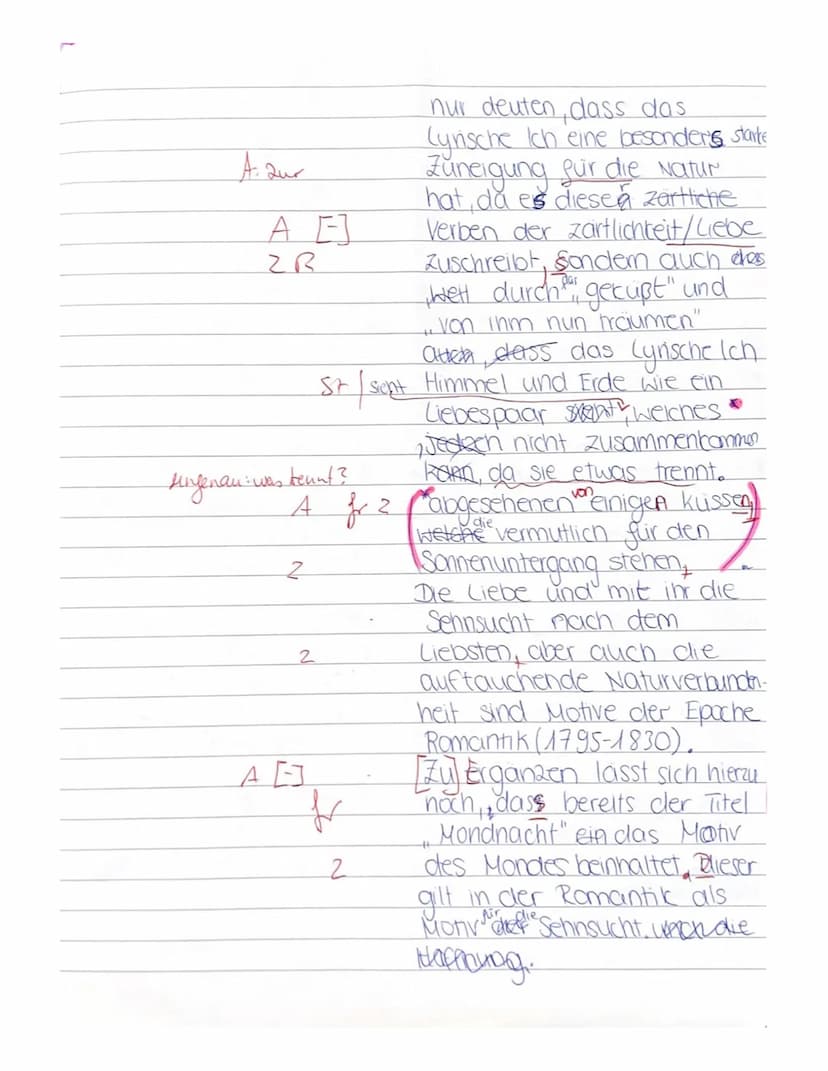 nur deuten, dass das
Lyrische Ich eine besonders starke
A: zur Zuneigung für die Natur
hat, da es dieser zärtliche
A [-] Verben der zärtlichkeit/Liebe
Z R zuschreibt, Sondern auch
durch „geküßt" und
„von ihm nun träumen"
, dass das Lyrische Ich
St | sieht Himmel und Erde wie ein
Liebespaar sieht, welches *
, jedoch nicht zusammenkommen
ungenau: was trennt? kann, da sie etwas trennt.
A fr Z (*abgesehenen von einigen küssen,
welche die vermutlich für den
Z Sonnenuntergang stehen,).
Die Liebe und mit ihr die
Sehnsucht nach dem
Z Liebsten, aber auch die
auftauchende Naturverbunden-
heit sind Motive der Epoche
Romantik (1795-1830).
A [-] [Zu] Ergänzen lässt sich hierzu
fr noch, dass bereits der Titel
„Mondnacht" ein das Motiv
Z des Mondes beinhaltet. Dieser
gilt in der Romantik als
Motiv für die Sehnsucht. die
Hoffnung.